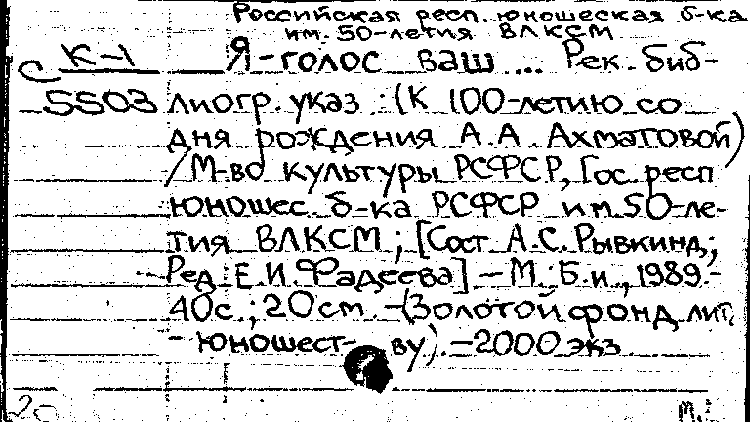 Российская респ. юношеская б-ка
им. 50-летия ВЛКСМ
С К-1 Я - голос ваш ... Рек. биб-
5503 лиогр. указ : (К 100-летию со
дня рождения А. А. Ахматовой)
/ М-во культуры РСФСР, Гос. респ
юношес. б-ка РСФСР им 50-ле-
тия ВЛКСМ ; [Сост А. С. Рывкинд ;
Ред. Е. И. Фадеева] - М. : Б.и., 1989.-
40с. ; 20 см. - (Золотой фонд лит.
- юношест- ву). - 2000 экз